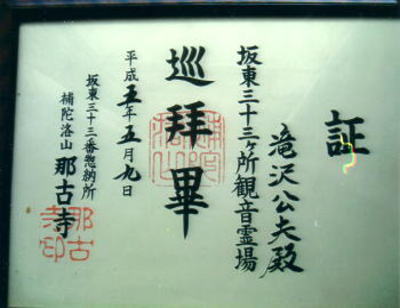 証
滝沢公夫殿
坂東三十三ヶ所観音霊場
巡拝畢
平成五年五月九日
坂東三十三番惣納所
補陀洛山 那古寺
補陀洛山
那古寺印